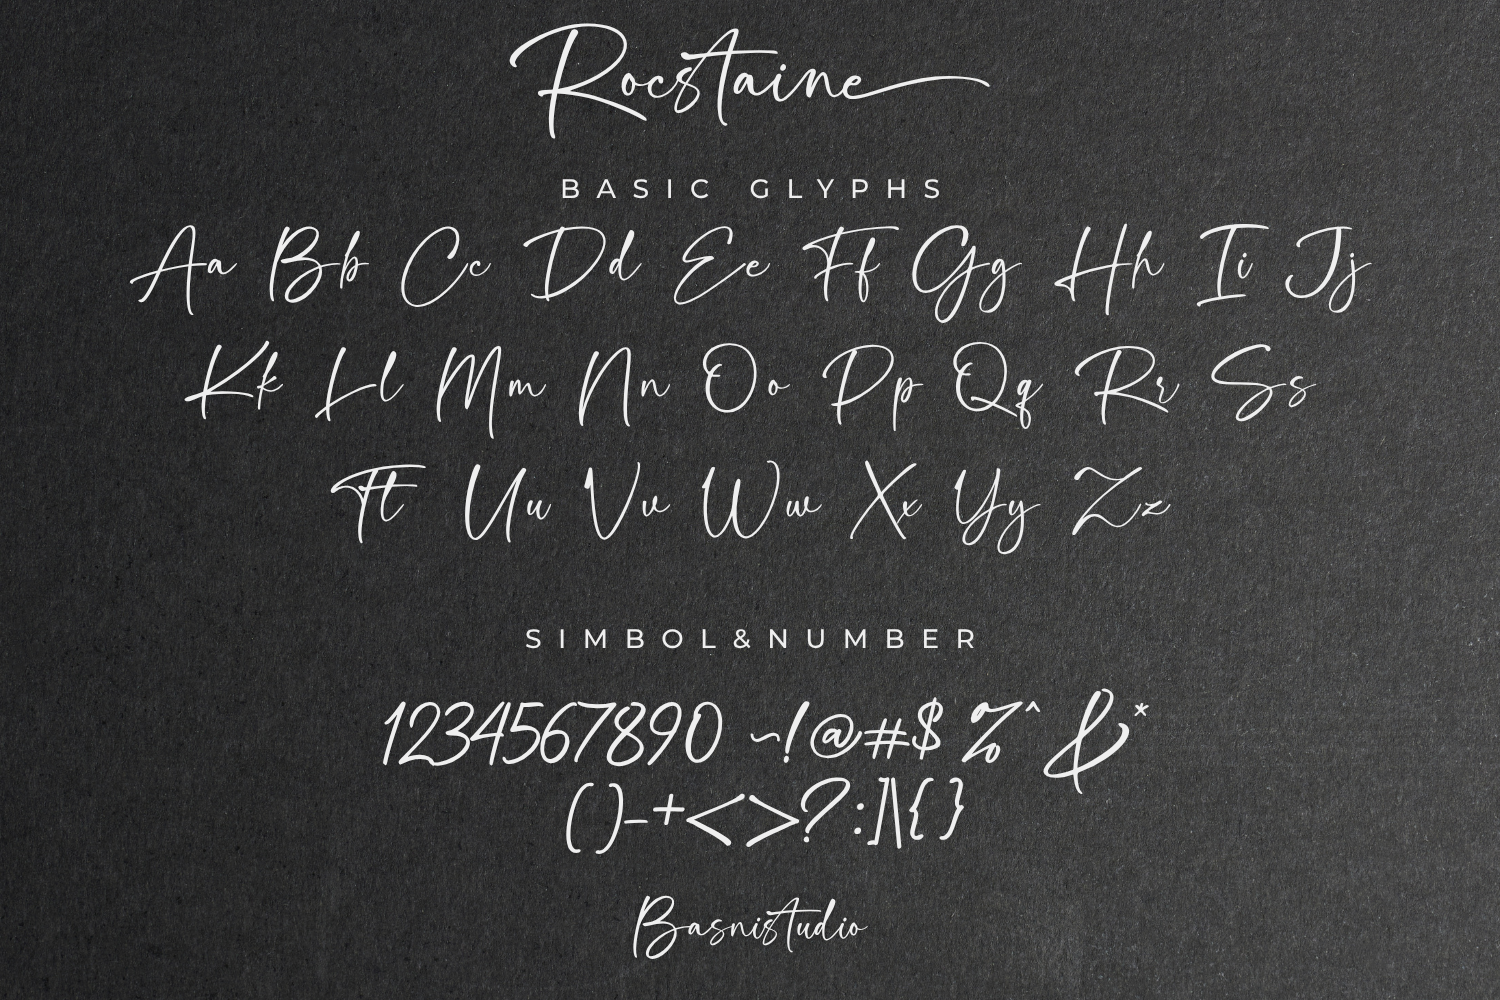 Rocstaine
BASIC GLYPHS
Aa Bb Cc Dd Ee Ff Gg Hh Ii Jj
Kk Ll Mm Nn Oo Pp Qq Rr Ss
Tt Uu Vv Ww Xx Yy Zz
SIMBOL&NUMBER
1234567890 ~!@#$ %^ &*
()-+<>?:]|\{}
Basnistudio